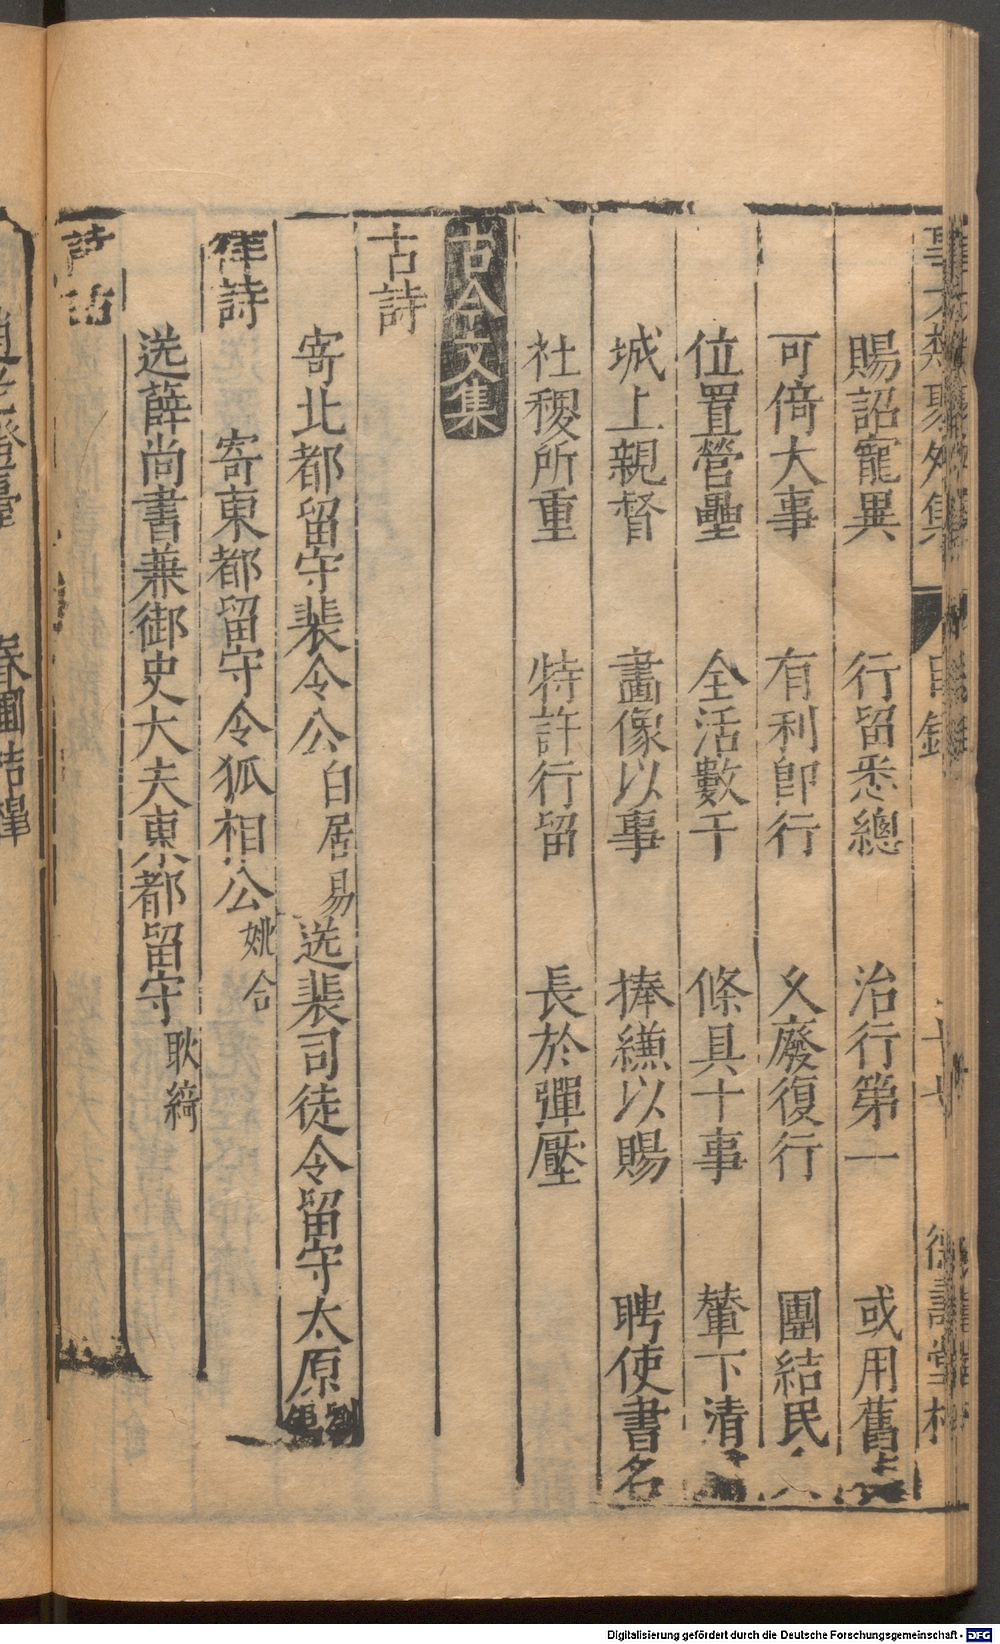 賜詔寵異 行留悉總 治行第一 或用舊
可倚大事 有利即行 乆廢復行 團結民
位置營壘 全活數千 條具十事 輦下清
城上親督 畫像以事 捧縑以賜 聘使書名
社稷所重 特許行留 長於彈壓
古今文集
古詩
寄北都留守裴令公 白居易 送裴司徒令留守太原 劉
律詩
寄東都留守令狐相公 姚合
送薛尚書兼御史大夫東都留守 耿緯
Digitalisierung gefördert durch die Deutsche Forschungsgemeinschaft - DFG